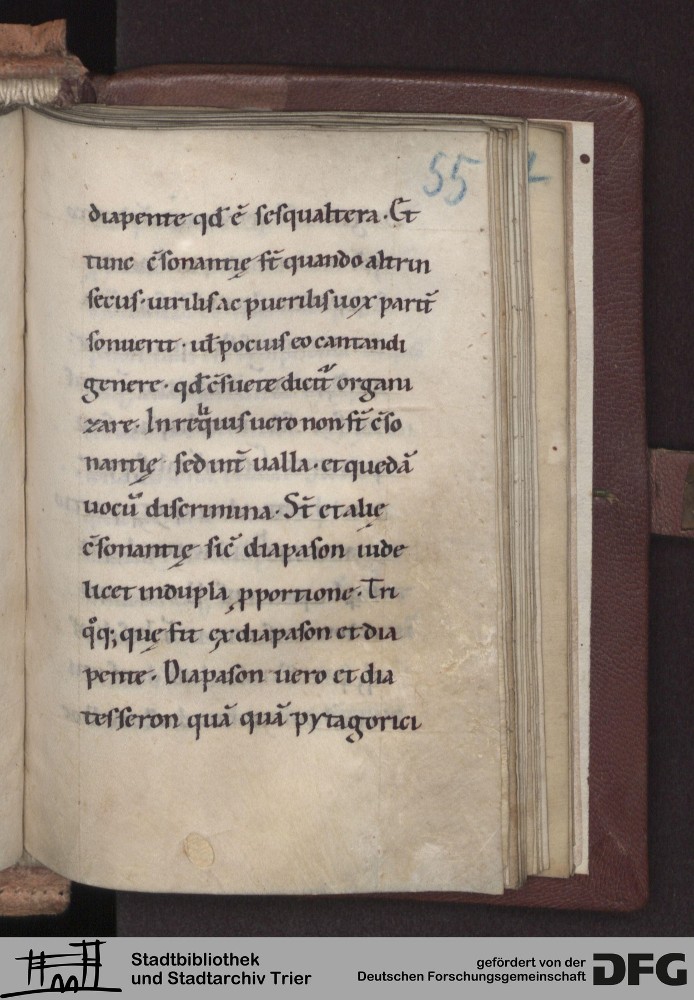 55
diapente qđ ē sesqualtera. Et
tunc c̄sonantię st̄ quando altrin
secus. uirilis ac puerilis uox parit̄
sonuerit. ul̄ pocius eo cantandi
genere. qđ c̄suete dicit᷑ organi
zare. In reliquis uero non st̄ c̄so
nantię sed int̄ ualla. et quedā
uocū discrimina. St̄ et alię
c̄sonantię sic̄ diapason uide
licet in dupla ꝓportione. Tri
qͦq; quę fit ex diapason et dia
pente. Diapason uero et dia
tesseron quā quā pytagorici
Stadtbibliothek
und Stadtarchiv Trier
gefördert von der
Deutschen Forschungsgemeinschaft
DFG